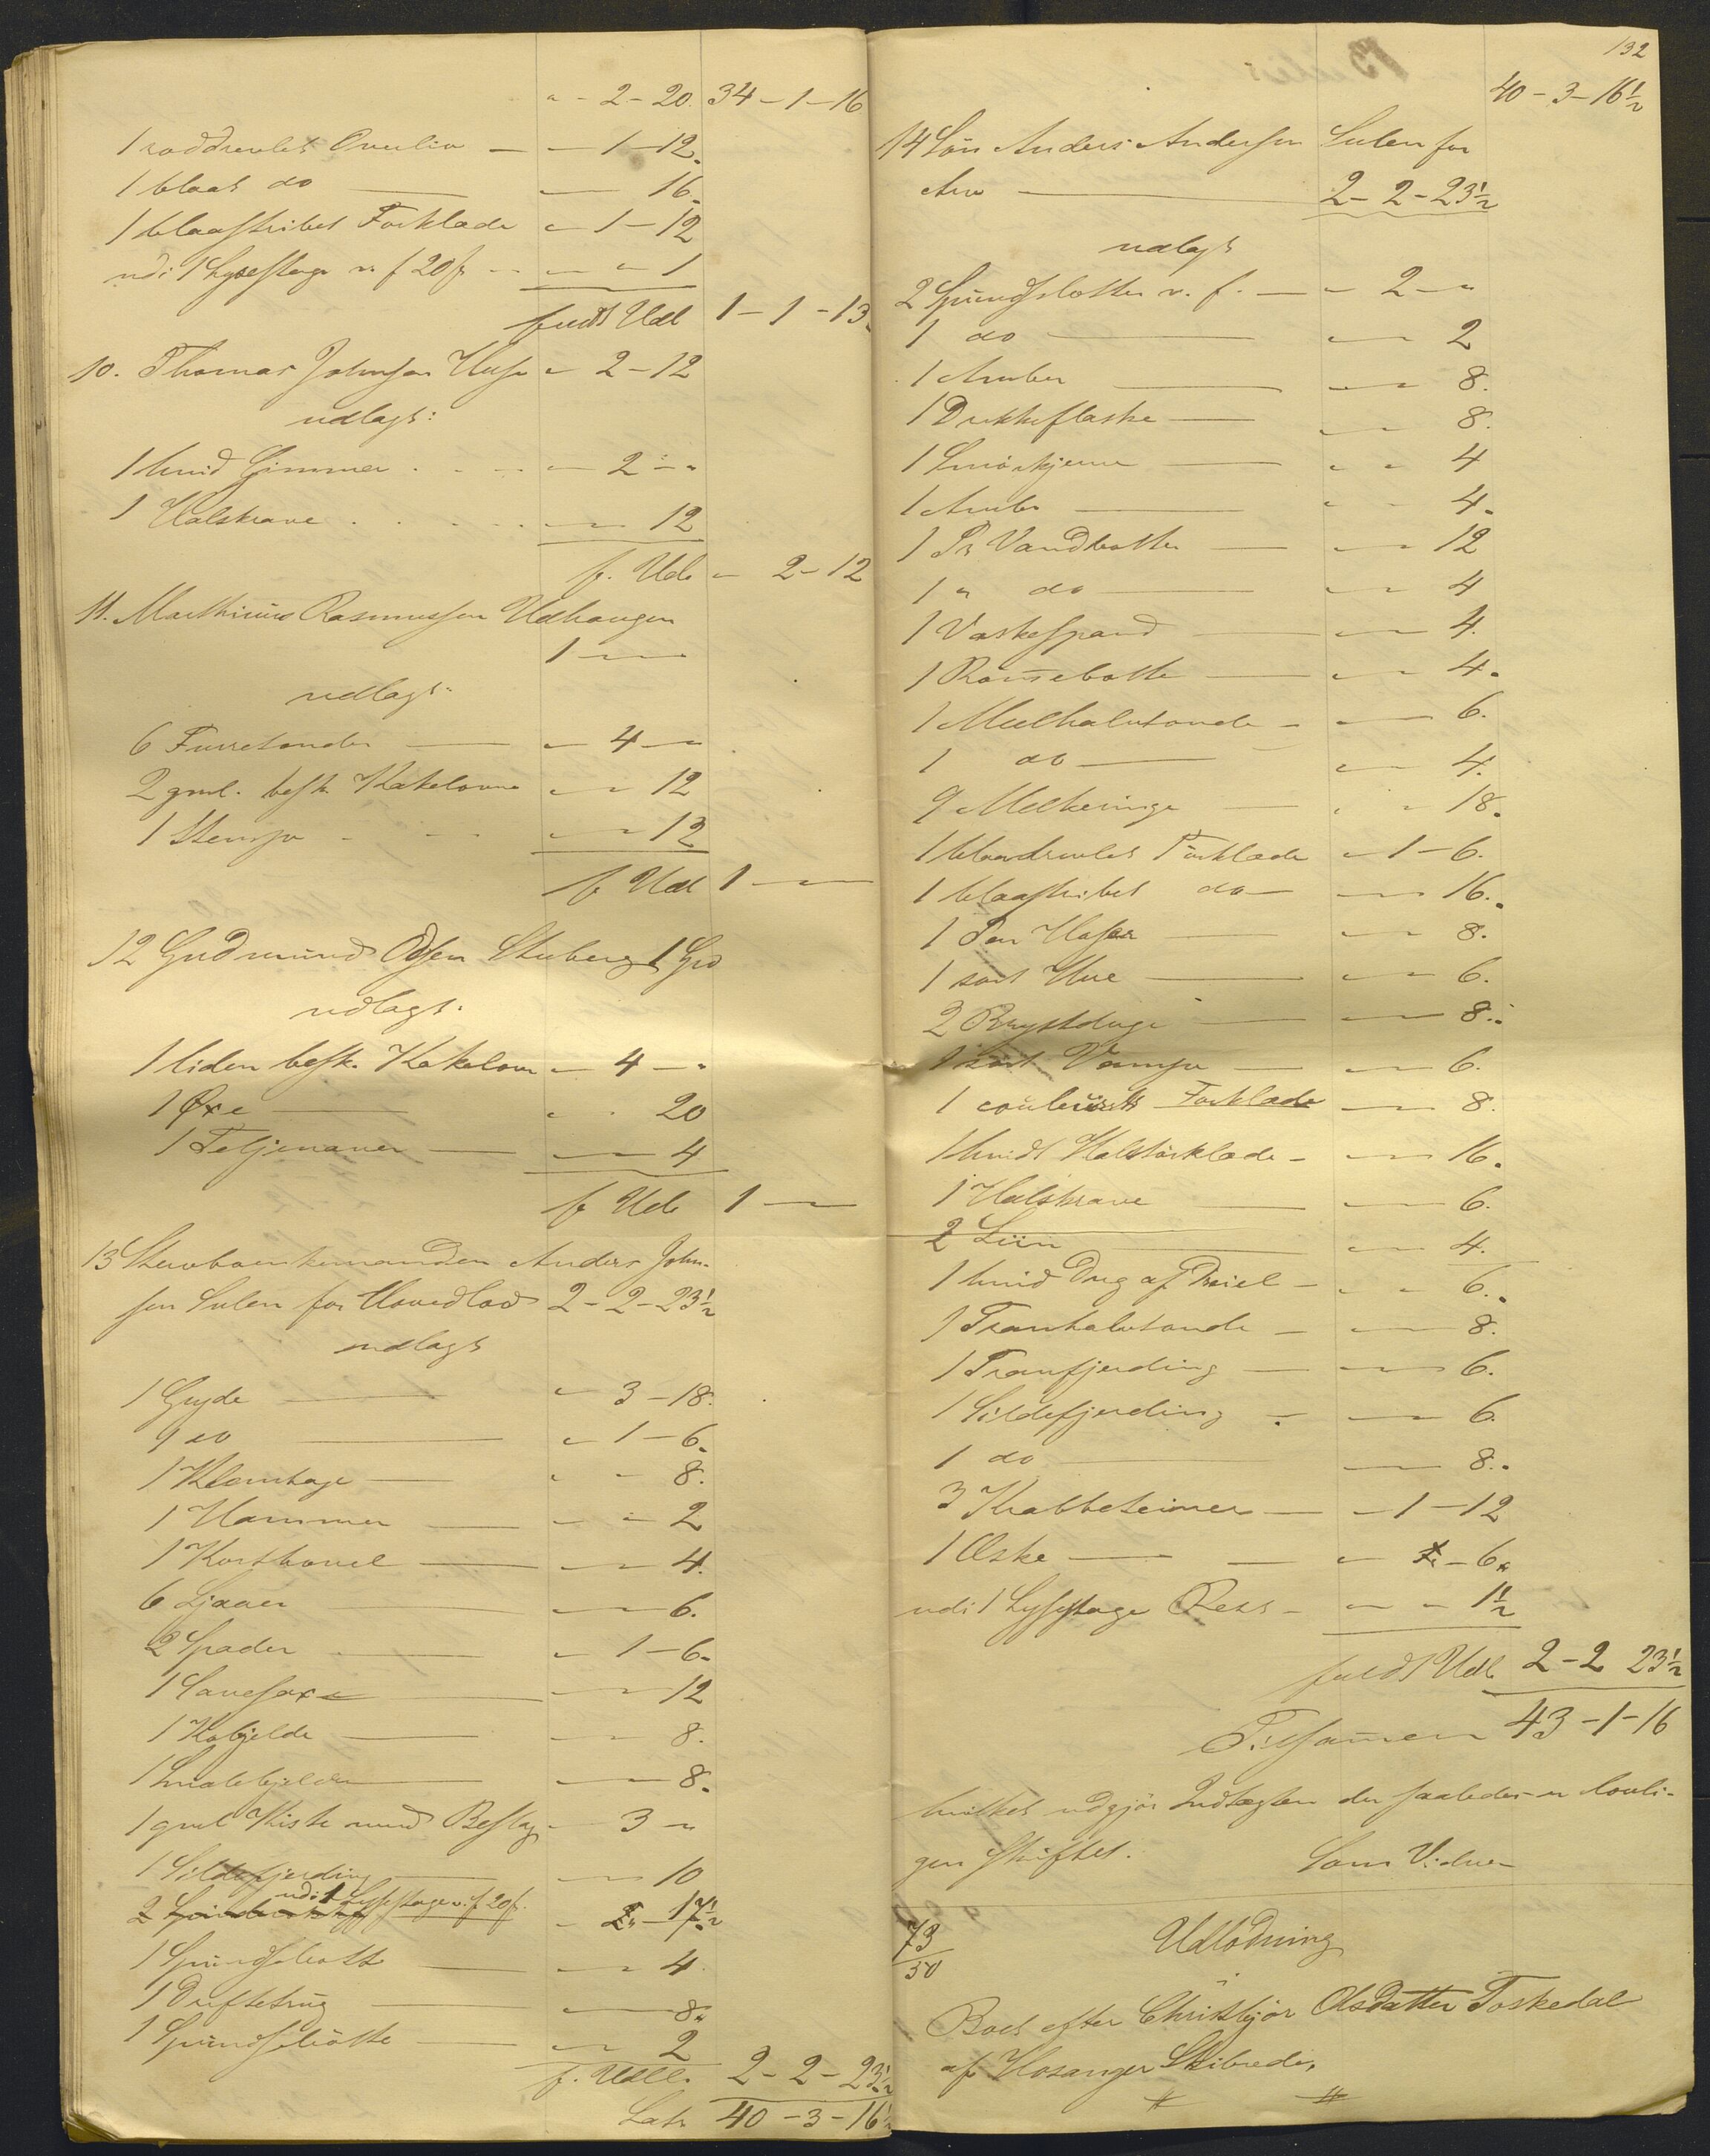 " - 2 - 20. 34 - 1 - 16
1 röddrevlet Overliv - 1 - 12.
1 blaat do 16.
1 blaastribet Forklæde " 1 - 12
udi 1 Lysestage v. f 20 ß " " 1
fuldt Udl 1 - 1 - 13
10. Thomas Johnsen " 2 - 12
udlagt:
1 hvid Gimmer " 2 - "
1 Halskrave " " 12
f. Udl " 2 - 12
11. Mathius Rasmussen Udhaugen
1 " "
udlagt:
6 " 4 - "
2 gml. besk. Kakelovne " " 12
1 " " 12
f Udl 1 " "
12 Gudmund Olsen Stuberg
udlagt:
1 liden besk. Kakelovn " 4 - "
1 Øxe " " 20
1 " " 4
f. Udl 1 " "
13 Stervboenkemanden Anders John-
sen Sulen for Hovedlod 2 - 2 - 23½
udlagt
1 Gryde " 3 - 18.
1 do " 1 - 6.
1 " " 8.
1 Hammer " " 2
1 " " 4.
6 Ljaaer " " 6.
2 Spader " 1 - 6.
1 Sauesax " " 12
1 Kobjelde " " 8.
1 Smalebjelder " " 8.
1 gml Kiste med Beslag " 3 "
1 Sildefjerding " " 10
2 udi 1 Lysestage v. f 20 ß. " " 17½
1 " " 4.
1 Duftetrug " " 8.
1 " " 2
f. Udl. 2 - 2 - 23½
Lats 40 - 3 - 16½
132
40 - 3 - 16½
14 Sön Anders Andersen Sulen for
Arv 2 - 2 - 23½
udlagt
2 v. f. " 2 - "
1 do " " 2
1 Ambar " " 8.
1 Drikkeflaske " " 8.
1 Smörkjerne " " 4
1 Ambar " " 4.
1 Pr Vandbötter " " 12
1 " do " " 4
1 Vaskespand " " 4.
1 Römmebötte " " 4.
1 Meelhalvtønde " " 6.
1 do " " 4.
9 Melkeringe " " 18.
1 blaadrevlet Forklæde " 1 - 6.
1 blaastribet do " " 16.
1 Par Hoser " " 8.
1 sort Hue " " 6.
2 Brystduge " " 8.
1 sort Vams " " 6.
1 couleurt Forklæde " " 8.
1 hvidt Halstörklæde " " 16.
1 Halskrave " " 6.
2 Liin " " 4.
1 hvid Dug af Dreiel " " 6.
1 Tranhalvtønde " " 8.
1 Tranfjerding " " 6.
1 Sildefjerding " " 6.
1 do " " 8.
3 Krabbeteiner " 1 - 12
1 Æske " " 6.
udi 1 Lysestage Rest " " 1½
fuldt Udl. 2 - 2 23½
Tilsamen 43 - 1 - 16
hvilket udgjör Indtægten der saaledes er lovli-
gen skiftet. Som Vidne
73
50
Udlodning
Boet efter Christbjör Olsdatter Toskedal
af Hosanger Skibrede.